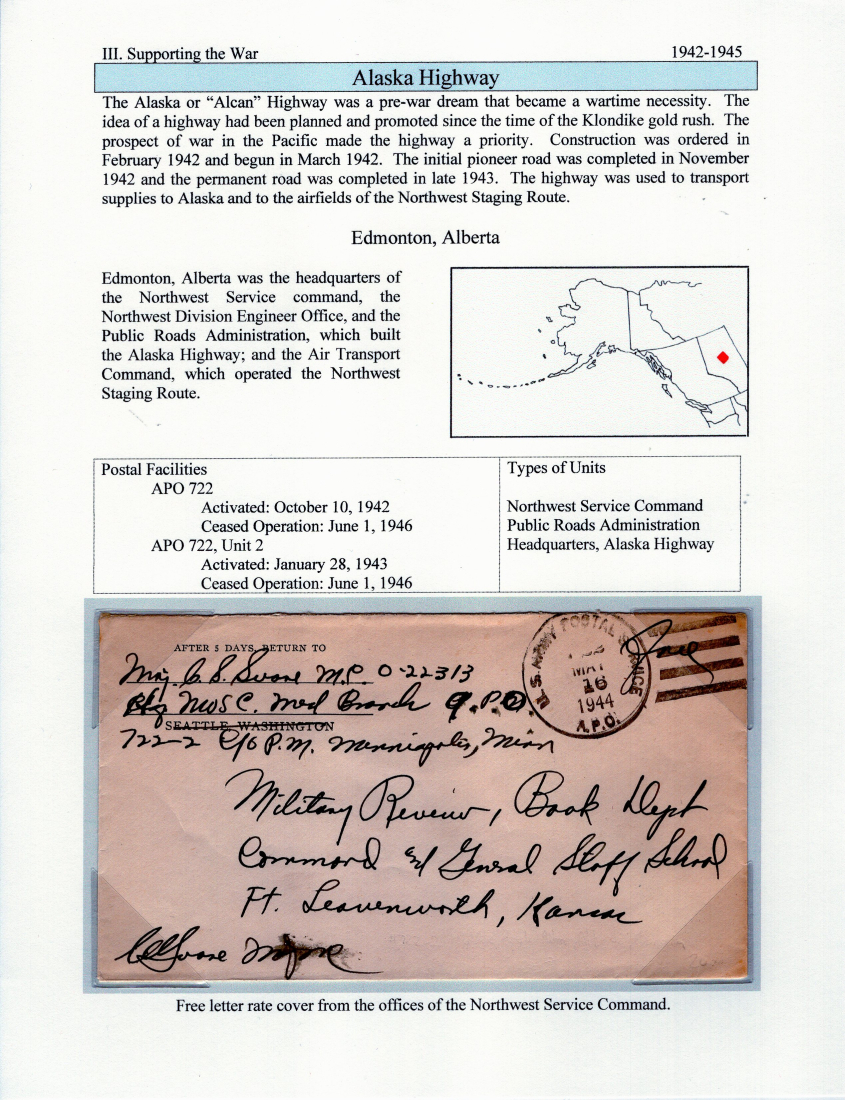 III. Supporting the War 1942-1945
Alaska Highway
The Alaska or “Alcan” Highway was a pre-war dream that became a wartime necessity. The
idea of a highway had been planned and promoted since the time of the Klondike gold rush. The
prospect of war in the Pacific made the highway a priority. Construction was ordered in
February 1942 and begun in March 1942. The initial pioneer road was completed in November
1942 and the permanent road was completed in late 1943. The highway was used to transport
supplies to Alaska and to the airfields of the Northwest Staging Route.
Edmonton, Alberta
Edmonton, Alberta was the headquarters of
the Northwest Service command, the
Northwest Division Engineer Office, and the
Public Roads Administration, which built
the Alaska Highway; and the Air Transport
Command, which operated the Northwest
Staging Route.
Postal Facilities
APO 722
Activated: October 10, 1942
Ceased Operation: June 1, 1946
APO 722, Unit 2
Activated: January 28, 1943
Ceased Operation: June 1, 1946
Types of Units
Northwest Service Command
Public Roads Administration
Headquarters, Alaska Highway
AFTER 5 DAYS, RETURN TO
Maj. C. S. M.C. O-22313
Hq NWSC. Med Branch A.P.O.
SEATTLE, WASHINGTON
722-2 c/o P.M. Minneapolis, Minn
U.S. ARMY POSTAL SERVICE
MAY
16
1944
A.P.O.
Free
Military Review, Book Dept
Command and General Staff School
Ft. Leavenworth, Kansas
Free letter rate cover from the offices of the Northwest Service Command.